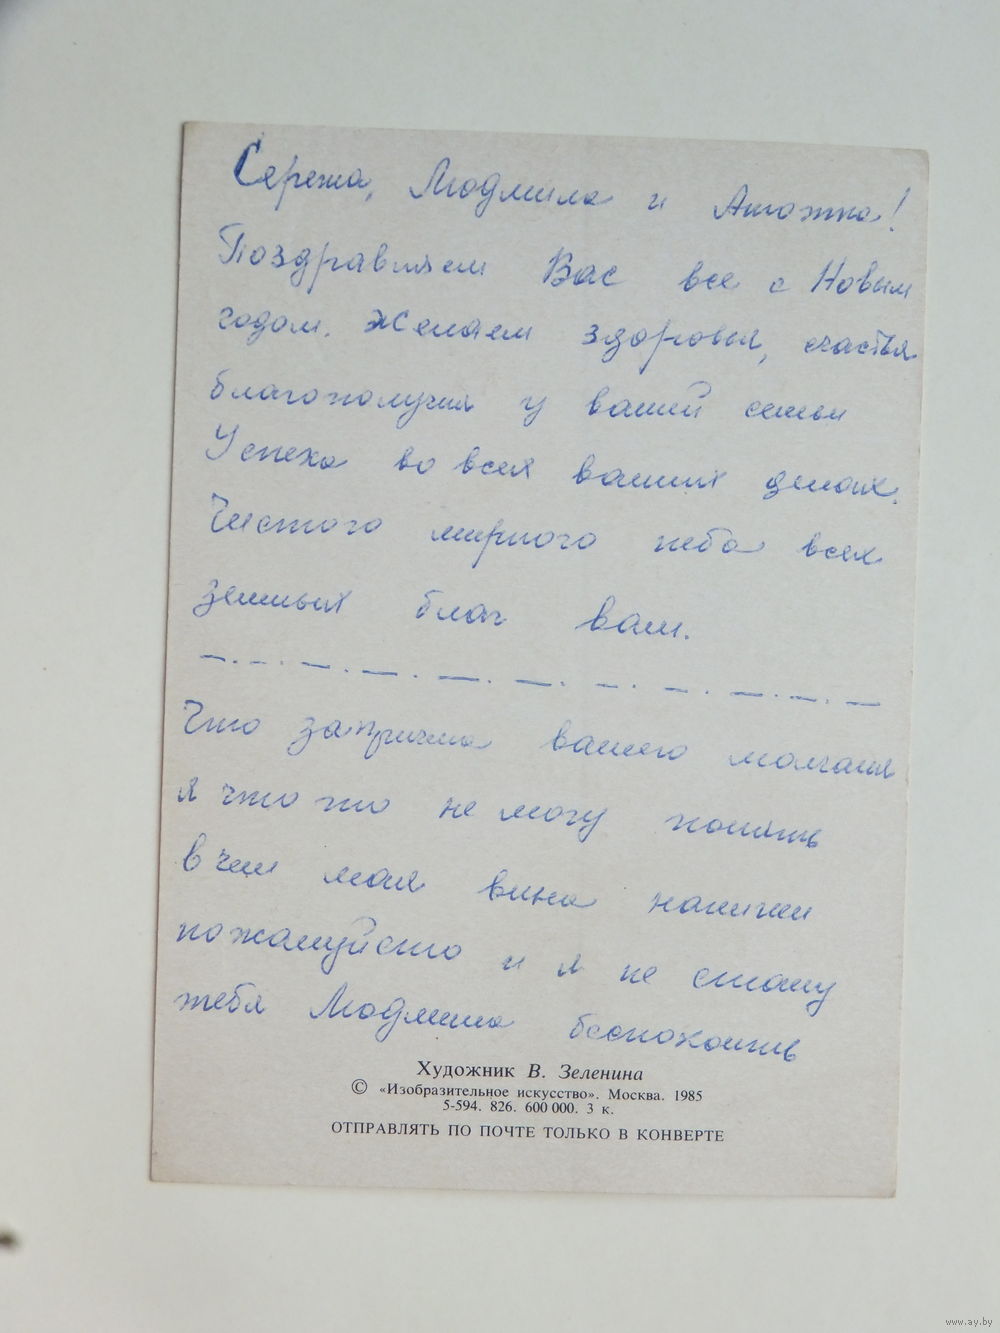 Сережа, Людмила и
Поздравляем Вас все с Новым
годом. Желаем здоровья, счастья
благополучия у вашей семьи
Успеха во всех ваших делах.
Чистого мирного неба всех
земных благ вам.
Что за причина вашего молчания
я что то не могу понять
в чем моя вина напиши
пожалуйсто и я не стану
тебя Людмила беспокоить
Художник В. Зеленина
© «Изобразительное искусство». Москва. 1985
5-594. 826. 600 000. 3 к.
ОТПРАВЛЯТЬ ПО ПОЧТЕ ТОЛЬКО В КОНВЕРТЕ
www.ay.by